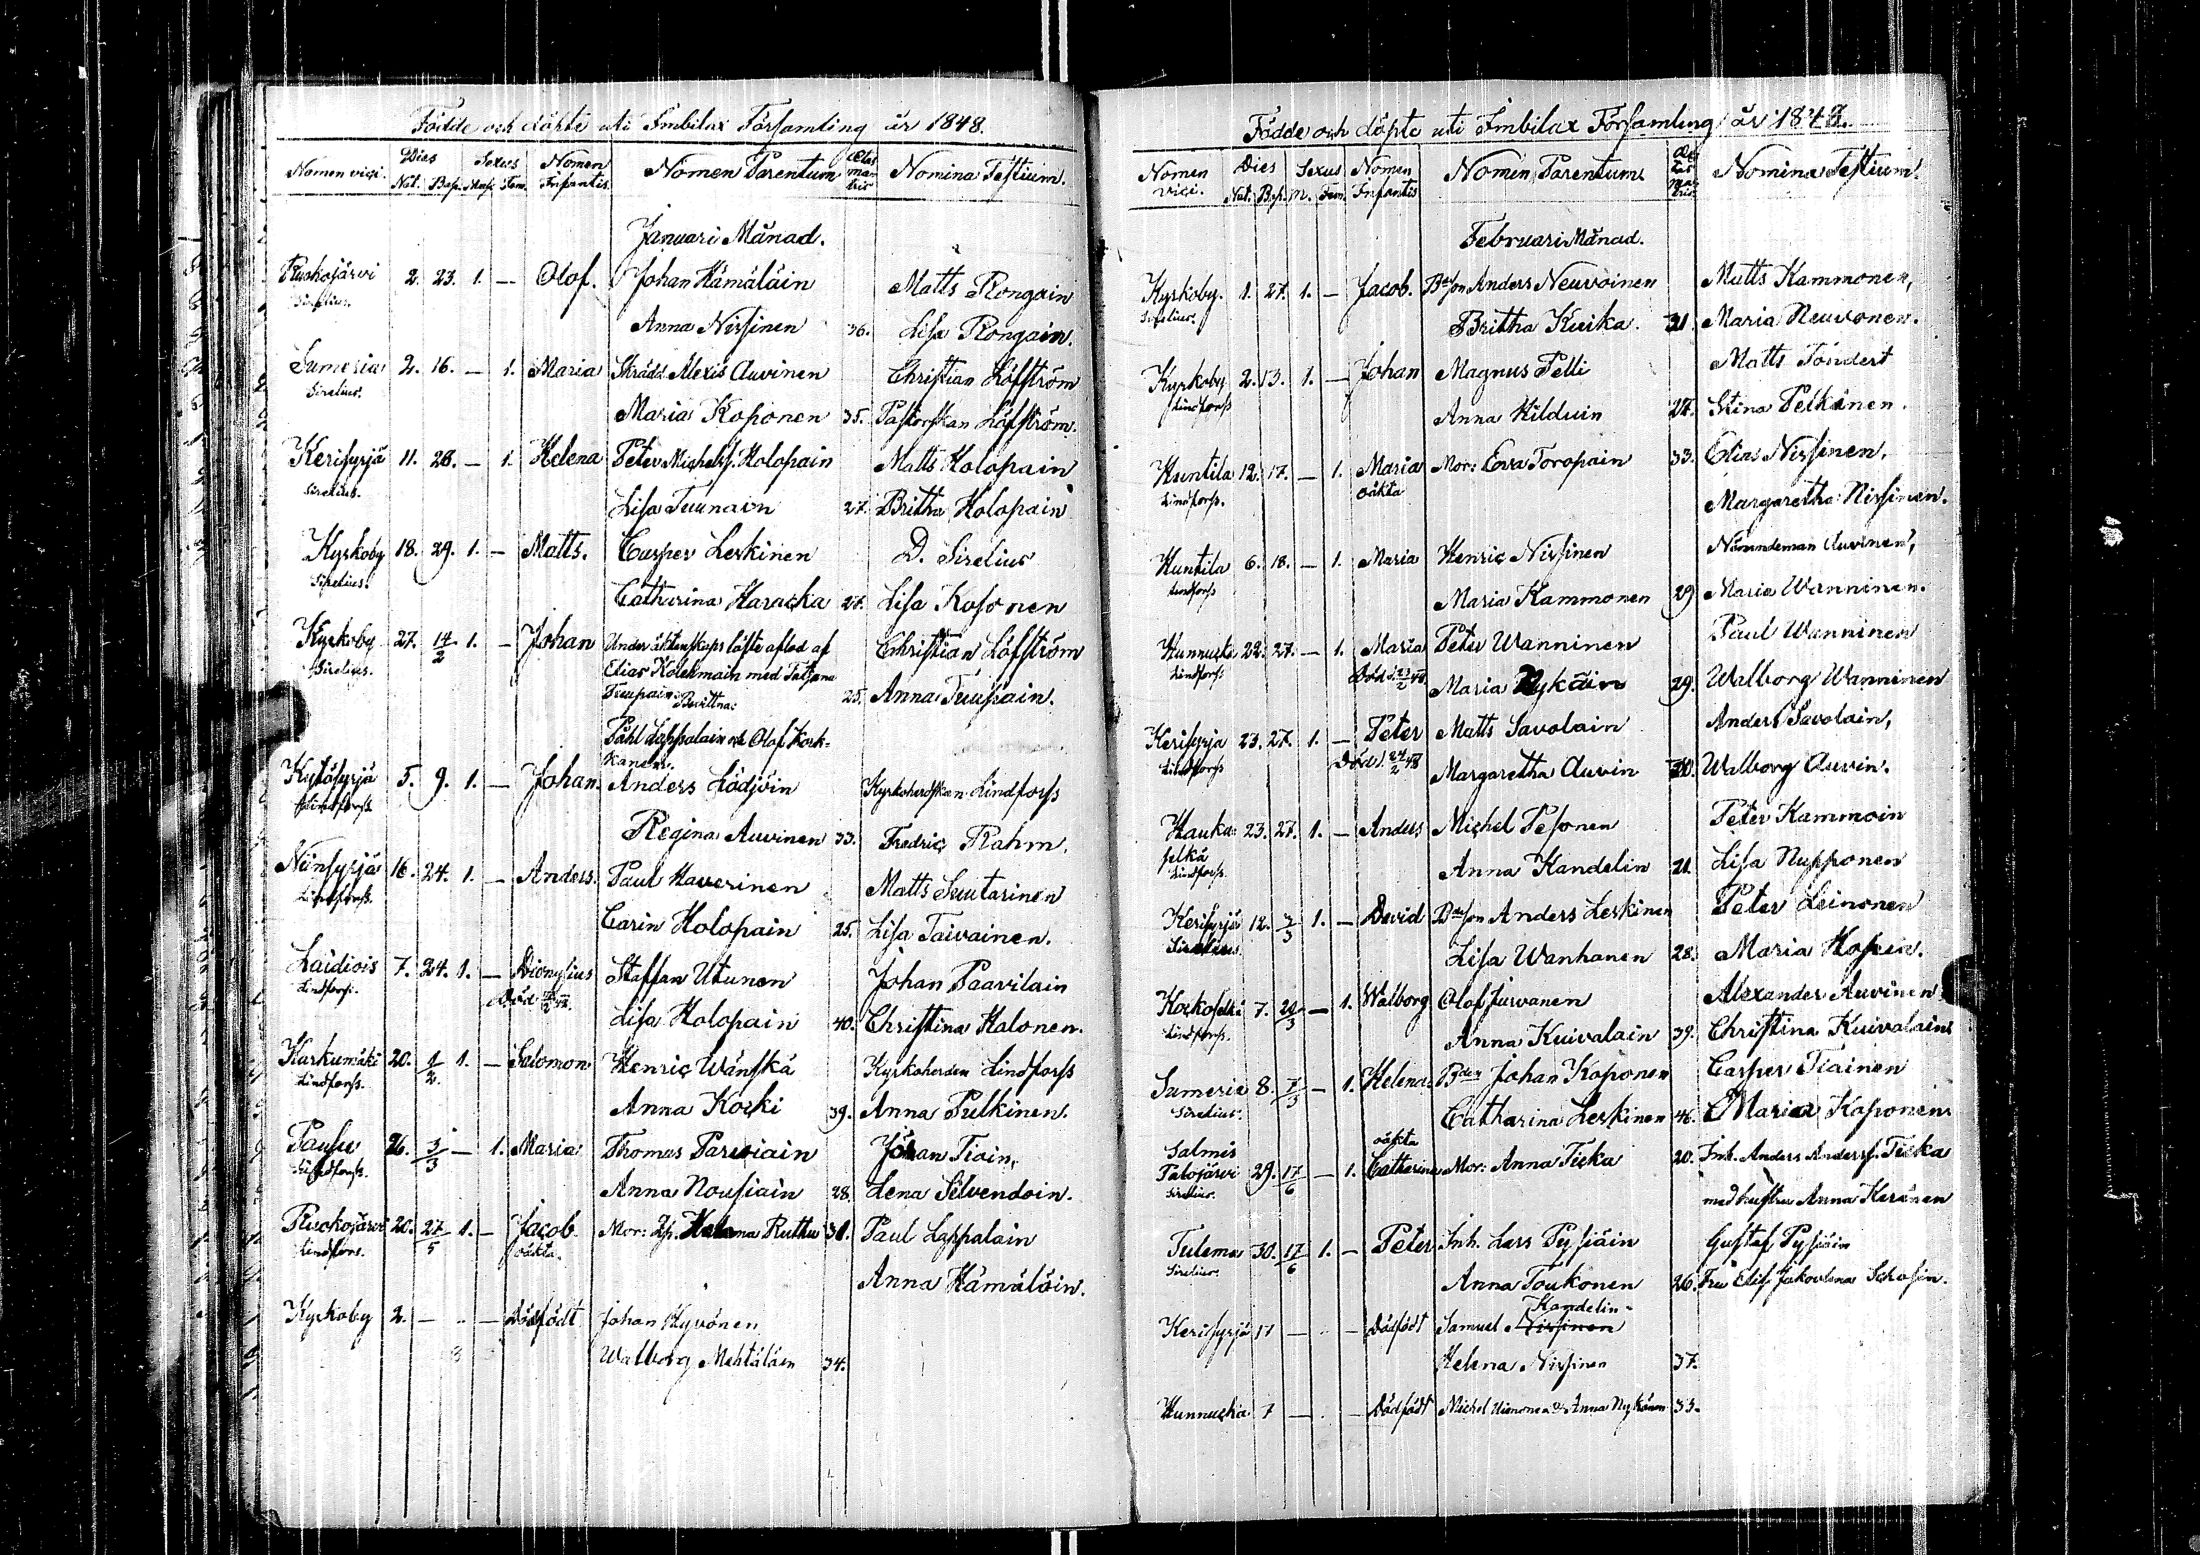 Födde och döpte uti Imbilax Församling år 1848.
Nomen vici. Dies Nat. Bap. Sexus Masc. Fem. Nomen Infantis Nomen Parentum Ætas matris Nomina Testium.
Januari Månad.
Ruskojärvi 2. 23. 1. — Olof. Johan Hämäläin Matts Rongain
Sirelius. Anna Nissinen 36. Lisa Rongain.
Sumeria 2. 16. — 1. Maria Skrädd. Alexis Auvinen Christian Löfström
Sirelius. Maria Koponen 35. Pastorskan Löfström.
Kerisyrjä 11. 28. — 1. Helena Peter Michelss. Holopain Matts Holopain
Sirelius. Lisa Tuunain 27. Britha Holopain
Kyrkoby 18. 29. 1. — Matts. Casper Leskinen D. Sirelius
Sirelius. Catharina Haracka 27. Lisa Kosonen
Kyrkoby 27. 14/2 1. — Johan Under äktenskaps löfte aflad af Christian Löfström
Sirelius. Elias Kolehmain med Tatjana
Truupain. Bevittna: 25. Anna Truupain.
Påhl Lappalain och Olof Kork-
kanen.
Kyläsyrjä 5. 9. 1. — Johan. Anders Lödjöin Kyrkoherdskan Lindforss
Lindforss. Regina Auvinen 33. Fredric Rahm.
Niinsyrjä 16. 24. 1. — Anders. Paul Haverinen Matts Suutarinen
Lindforss. Carin Holopain 25. Lisa Taivainen.
Läidiois 7. 24. 1. — Dionysius Staffan Utunen Johan Paavilain
Lindforss. Död Lisa Holopain 40. Christina Halonen.
Harkumäki 20. 1/2. 1. — Salomon Henric Wänskä Kyrkoherden Lindforss
Lindforss. Anna Kocki 39. Anna Pulkinen.
Pausu 26. 3/3 — 1. Maria Thomas Parviain Johan Tiain,
Lindforss. Anna Nousiain 28. Lena Silvendoin.
Ruckojärvi 20. 27/5 1. — Jacob Mor: Helena Ruthu 31. Paul Lappalain
Lindforss. oäkta. Anna Hämäläin.
Kyrkoby 2. — — — Dödfödt Johan Hyvönen
Walborg Mehtäläin 34.
Födde och döpte uti Imbilax Församling år 1848.
Nomen vici. Dies Nat. Bap. Sexus M. Fem. Nomen Infantis Nomen Parentum Ætas matris Nomina Testium.
Februari Månad.
Kyrkoby. 1. 27. 1. — Jacob. Bdeson Anders Neuvoinen Matts Kammonen,
Sirelius. Britha Kuika 31 Maria Neuvonen.
Kyrkoby 2. 13. 1. — Johan Magnus Pelli Matts Töndert
Lindforss Anna Hilduin 27. Stina Pelkänen.
Huntila 12. 17. — 1. Maria Mor: Eva Toropain 33. Elias Nissinen,
Lindforss. oäkta Margaretha Nissinen.
Huntila 6. 18. — 1. Maria Henric Nissinen Nämndeman Auvinen,
Lindforss Maria Kammonen 29 Maria Wanninen.
Hunnucka 22. 27. — 1. Maria Peter Wanninen Paul Wanninen
Lindforss Död Maria Nykäin 29. Walborg Wanninen
Kerisyrja 23. 27. 1. — Peter Matts Savolain Anders Savolain,
Lindforss Död d. 24/2 48 Margaretha Auvin 30. Walborg Auvin.
Hauka- 23. 27. 1. — Anders Michel Pesonen Peter Kammoin
selkä Anna Kandelin 21. Lisa Nupponen
Lindforss.
Kerisyrjä 12. 3/3 1. — David Bdeson Anders Leskinen Peter Leinonen
Sirelius Lisa Wanhanen 28. Maria Kossen.
Kockoselkä 7. 20/3 — 1. Walborg Olof Jurvanen Alexander Auvinen
Lindforss. Anna Kuivalain 39. Christina Kuivalain
Sumeria 8. 7/3 — 1. Helena. Bden Johan Koponen Casper Tiainen
Sirelius. Catharina Leskinen 46. Maria Kaponen
Salmis oäkta
Palojärvi 29. 17/6 — 1. Catharina Mor: Anna Ticka 20. Inh. Anders Anderss. Ticka
Sirelius. med hustru Anna Keränen
Tulema 30. 17/6 1. — Peter Inh. Lars Pysiäin Gustaf Pysiäin
Sirelius. Anna Toukonen 26. Fru Elis. Jakovlena Schosin.
Kandelin
Kerisyrjä 11 — — — Dödfödt Samuel Nissinen
Helena Nissinen 37.
Hunnucka 7 — — Dödfödt Michel Uimonen & Anna Nykänen 33.